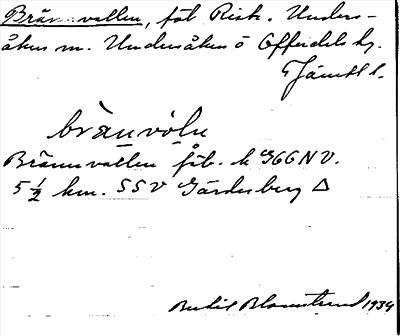 Brännvallen, fäb. Risk. Unders-
åkers sn. Undersåkers o Offerdals tg.
Jämtl l.
brànvóln
Brännvallen fäb. k G66NV.
5 ½ km. SSV Gärdesberg Δ
Bertil Blomstrand 1934